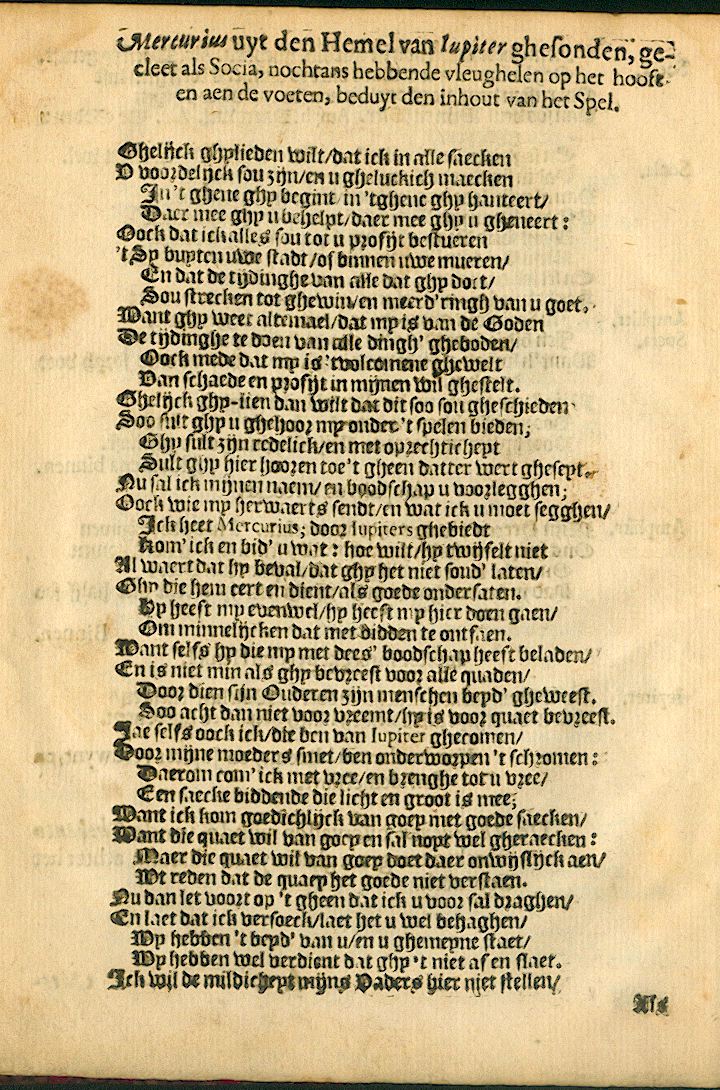 Mercurius uyt den Hemel van Iupiter ghesonden, ge-
cleet als Socia, nochtans hebbende vleughelen op het hooft
en aen de voeten, beduyt den inhout van het Spel.
Ghelijck ghylieden wilt/dat ick in alle saecken
V voordelijck sou zijn/en u gheluckich maecken
In 't ghene ghy begint/in 'tghene ghy hanteert/
Daer mee ghy u behelpt/daer mee ghy u gheneert:
Oock dat ick alles sou tot u profijt bestueren
't Sy buyten uwe stadt/of binnen uwe mueren/
En dat de tijdinghe van alle dat ghy doet/
Sou strecken tot ghewin/en meerd'ringh van u goet.
Want ghy weet altemael/dat my is van de Goden
De tijdinghe te doen van alle dingh' gheboden/
Oock mede dat my is 'tvolcomene ghewelt
Van schaede en profijt in mijnen wil ghestelt.
Ghelijck ghy-lien dan wilt dat dit soo sou gheschieden
Soo sult ghy u ghehoor my onder 't spelen bieden;
Ghy sult zijn redelick/en met oprechticheyt
Sult ghy hier hooren toe 't gheen datter wert gheseyt.
Nu sal ick mijnen naem/en boodschap u voorlegghen;
Oock wie my herwaerts sendt/en wat ick u moet segghen/
Ick heet Mercurius; door Iupiters ghebiedt
Kom' ick en bid' u wat: hoe wilt/hy twijfelt niet
Al waert dat hy beval/dat ghy het niet soud' laten/
Ghy die hem eert en dient/als goede ondersaten.
Hy heeft my evenwel/hy heeft my hier doen gaen/
Om minnelijcken dat met bidden te ontfaen.
Want selfs hy die my met dees' boodschap heeft beladen/
En is niet min als ghy bevreest voor alle quaden/
Door dien sijn Ouderen zijn menschen beyd' gheweest.
Soo acht dan niet voor vreemt/hy is voor quaet bevreest.
Jae selfs oock ick/die ben van Iupiter ghecomen/
Door mijne moeders smet/ben onderworpen 't schromen:
Daerom com' ick met vree/en brenghe tot u vree/
Een saecke biddende die licht en groot is mee;
Want ick kom goedichlijck van goey met goede saecken/
Want die quaet wil van goey en sal noyt wel gheraecken:
Maer die quaet wil van goey doet daer onwijslijck aen/
Mt reden dat de quaey het goede niet verstaen.
Nu dan let voort op 't gheen dat ick u voor sal draghen/
En laet dat ick versoeck/laet het u wel behaghen/
Wy hebben 't beyd' van u/en u ghemeyne staet/
Wy hebben wel verdient dat ghy 't niet af en slaet.
Ick wil de mildicheyt mijns Vaders hier niet stellen/
Als